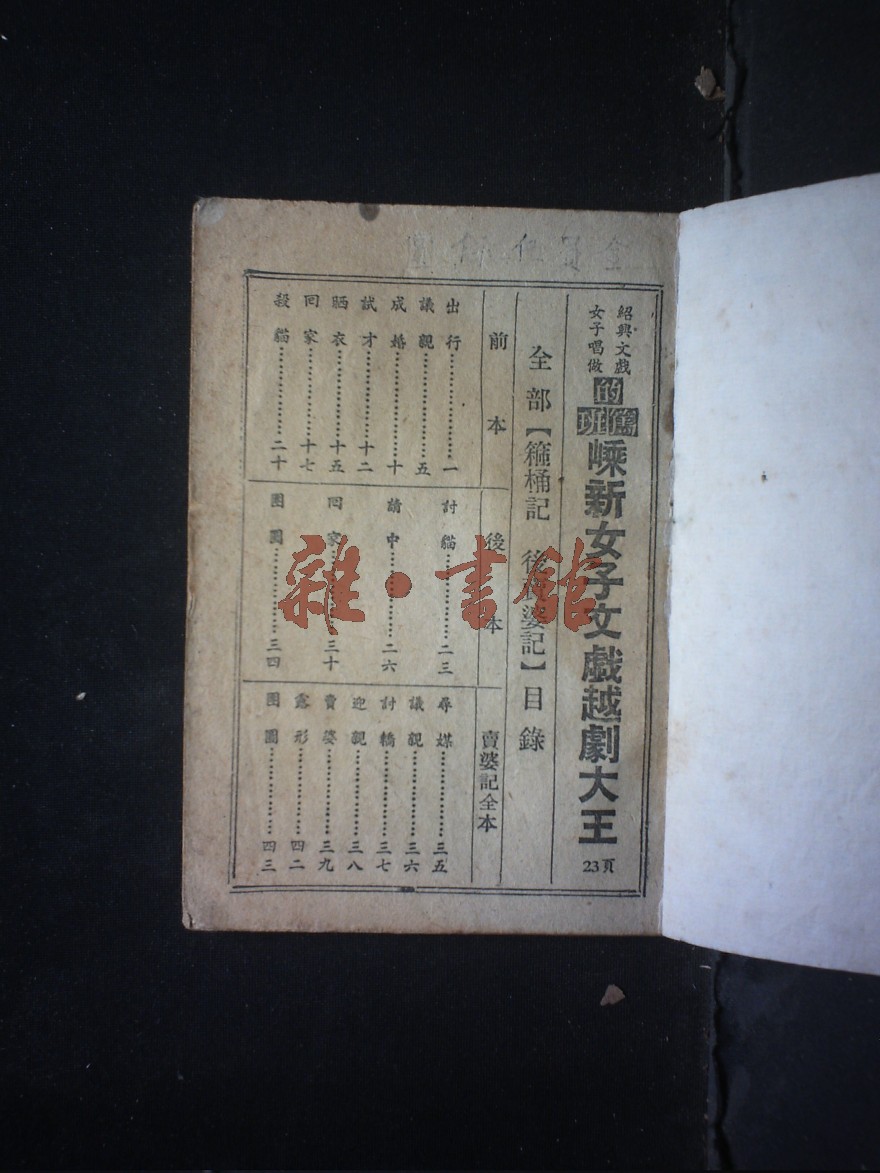 紹興文戲
女子唱做
的篤班
嵊新女子文戲越劇大王
23頁
全部【箍桶記 後賣婆記】目錄
前本
出行…一
議親…五
成婚…十
試才…十二
晒衣…十五
回家…十七
殺貓…二十
後本
討貓…二三
請中…二六
回家…三十
團圓…三四
賣婆記全本
尋媒…三五
議親…三六
討轎…三七
迎親…三八
賣婆…三九
露形…四二
團圓…四三
雜·書館